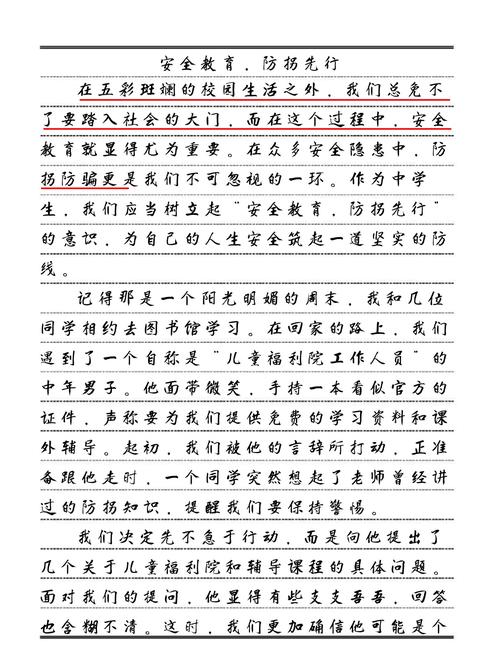 安全教育，防拐先行
在五彩斑斓的校园生活之外，我们总免不
了要踏入社会的大门，而在这个过程中，安全
教育就显得尤为重要。在众多安全隐患中，防
拐防骗更是我们不可忽视的一环。作为中学
生，我们应当树立起“安全教育，防拐先行”
的意识，为自己的人生安全筑起一道坚实的防
线。
记得那是一个阳光明媚的周末，我和几位
同学相约去图书馆学习。在回家的路上，我们
遇到了一个自称是“儿童福利院工作人员”的
中年男子。他面带微笑，手持一本看似官方的
证件，声称要为我们提供免费的学习资料和课
外辅导。起初，我们被他的言辞所打动，正准
备跟他走时，一个同学突然想起了老师曾经讲
过的防拐知识，提醒我们要保持警惕。
我们决定先不急于行动，而是向他提出了
几个关于儿童福利院和辅导课程的具体问题。
面对我们的提问，他显得有些支支吾吾，回答
也含糊不清。这时，我们更加确信他可能是个